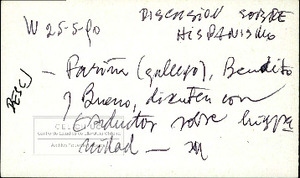 W 25-5-90
DISCENSION SOBRE
HISPANISMO
DESCJ
- Fariña (gallego), Bendito
y Bueno, discuten con
conductor sobre hispa
nidad -